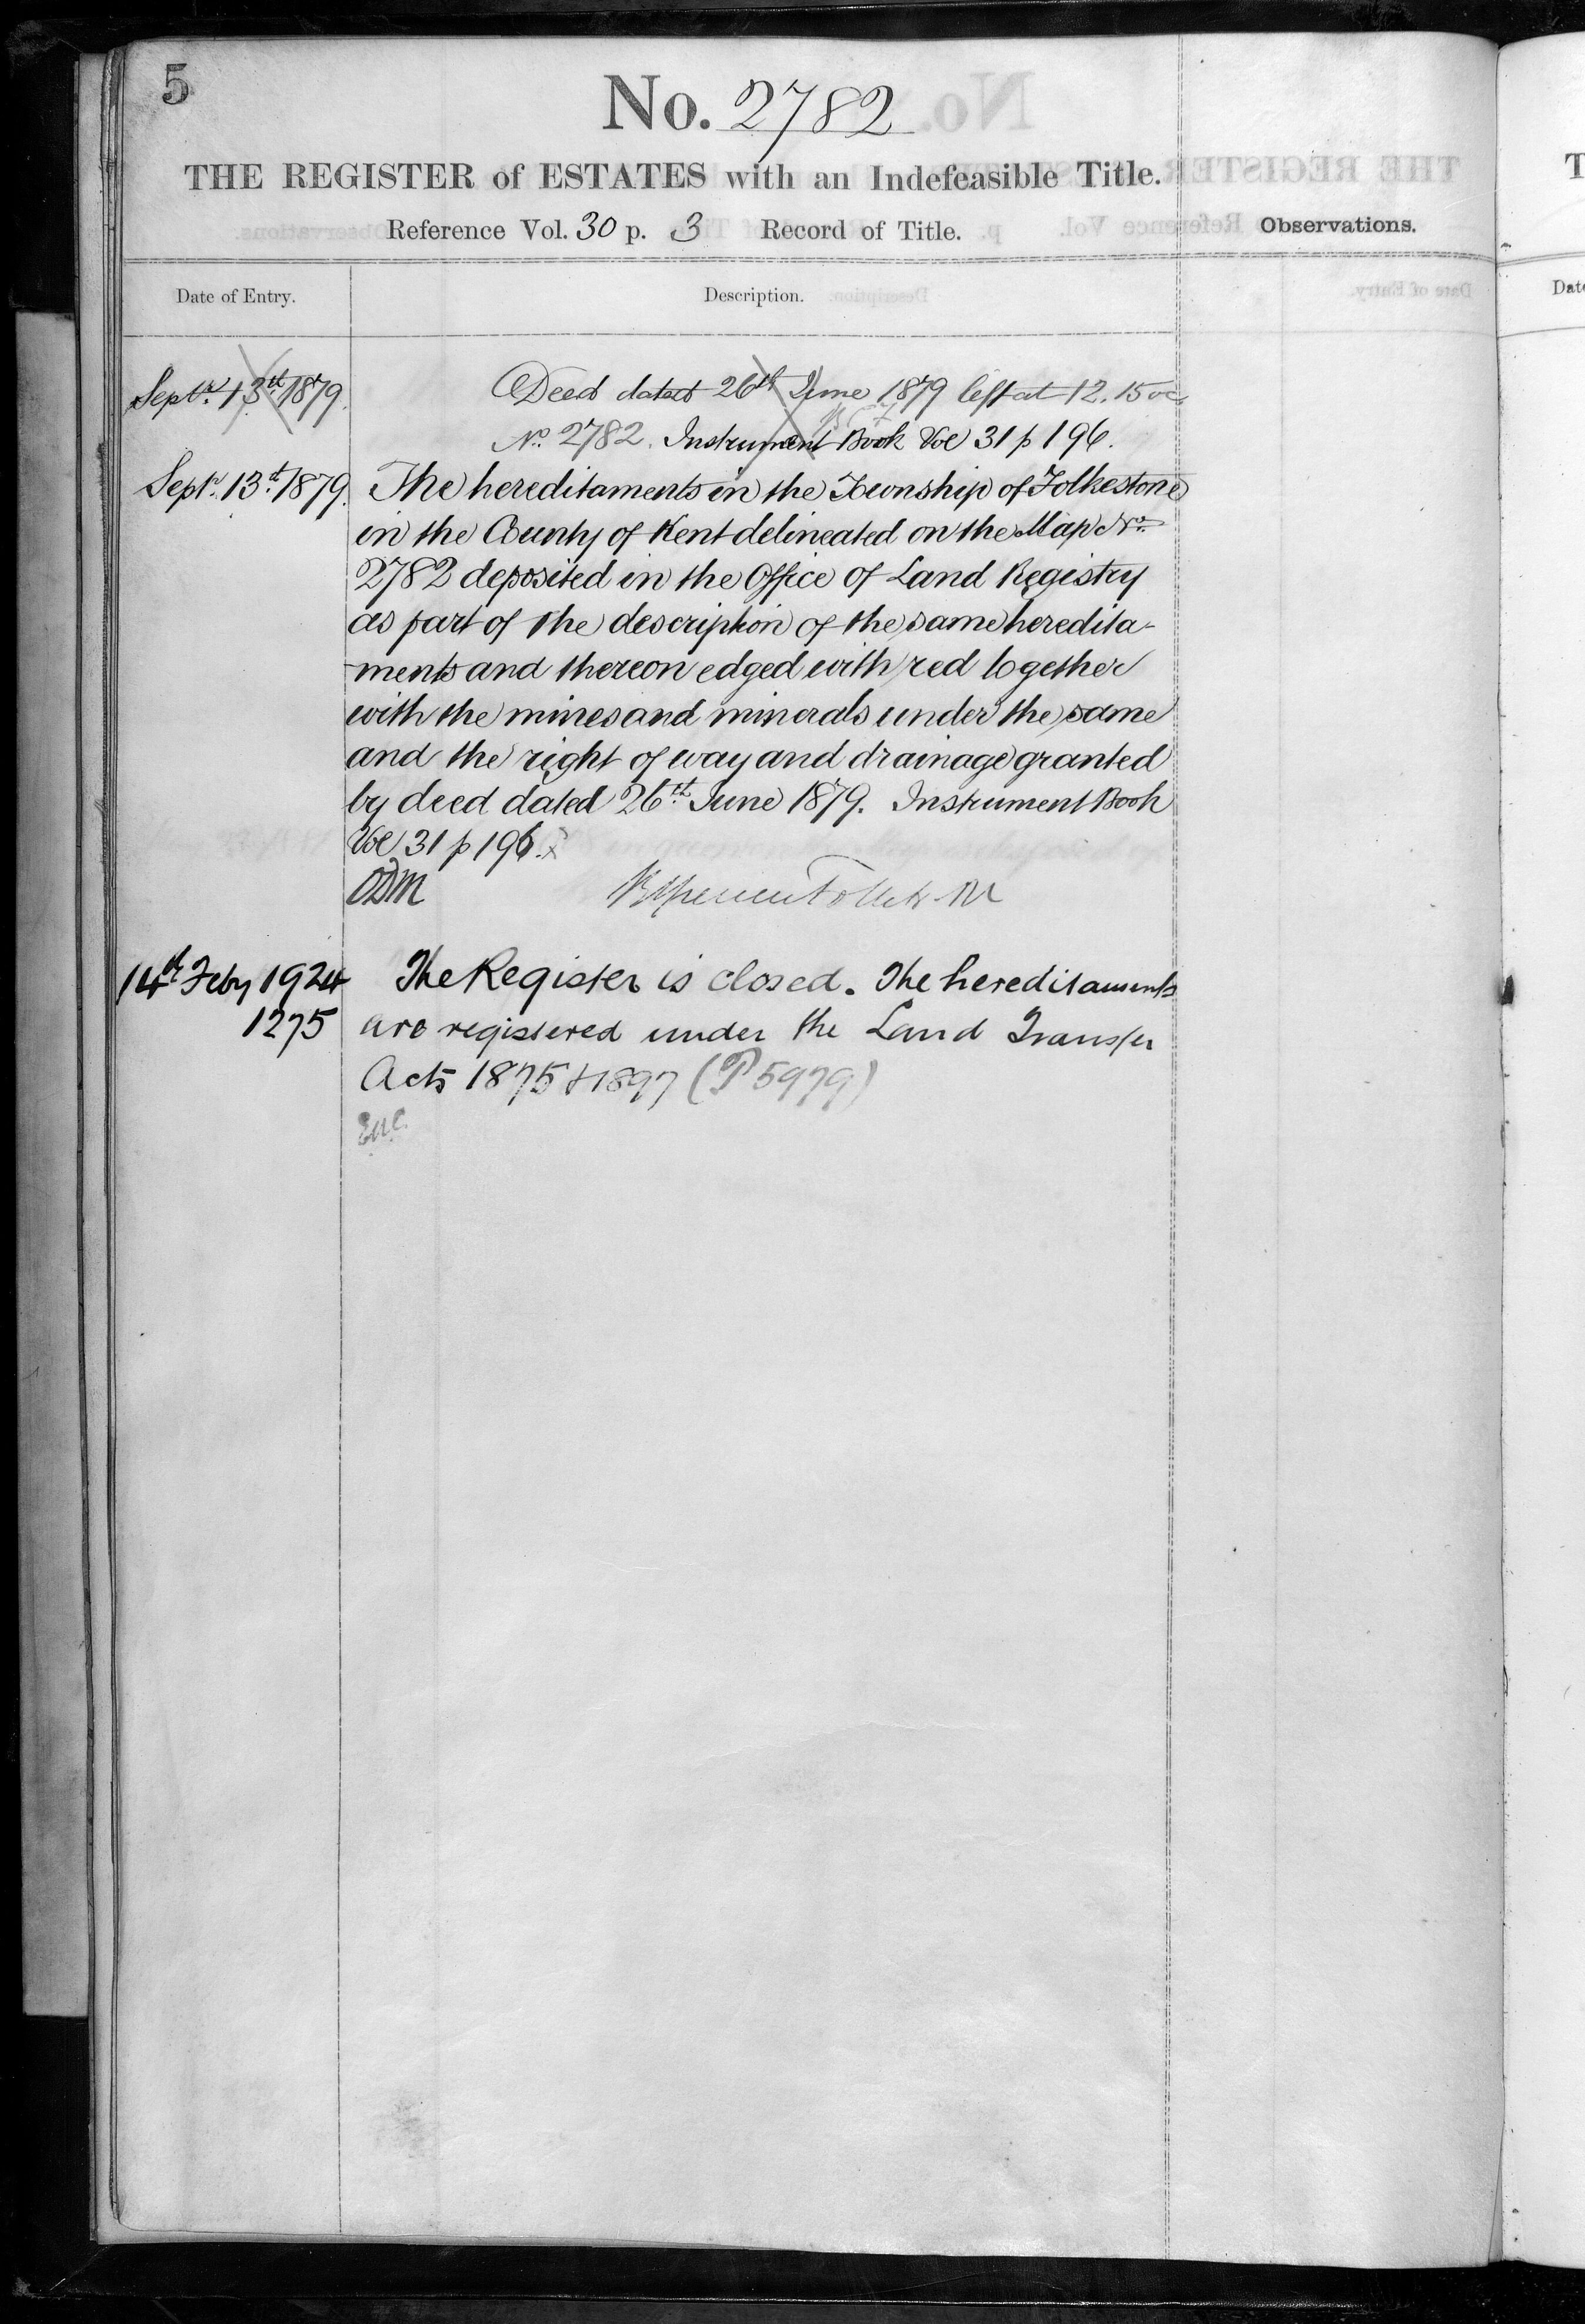 5
No. 2782
THE REGISTER of ESTATES with an Indefeasible Title.
Reference Vol. 30 p. 3 Record of Title.
Observations.
Date of Entry.
Description.
Septr. 13th 1879. Deed dated 26th June 1879 left at 12.15 oc.
No. 2782. Instrument Book Vol 31 p 196.
Septr. 13th 1879. The hereditaments in the Township of Folkestone
in the County of Kent delineated on the Map No.
2782 deposited in the Office of Land Registry
as part of the description of the same heredita-
ments and thereon edged with red together
with the mines and minerals under the same
and the right of way and drainage granted
by deed dated 26th June 1879. Instrument Book
Vol 31 p 196.
ODM
14th Feby 1924 The Register is closed. The hereditaments
1275 are registered under the Land Transfer
Acts 1875 & 1897 (P 5979)
T
Date